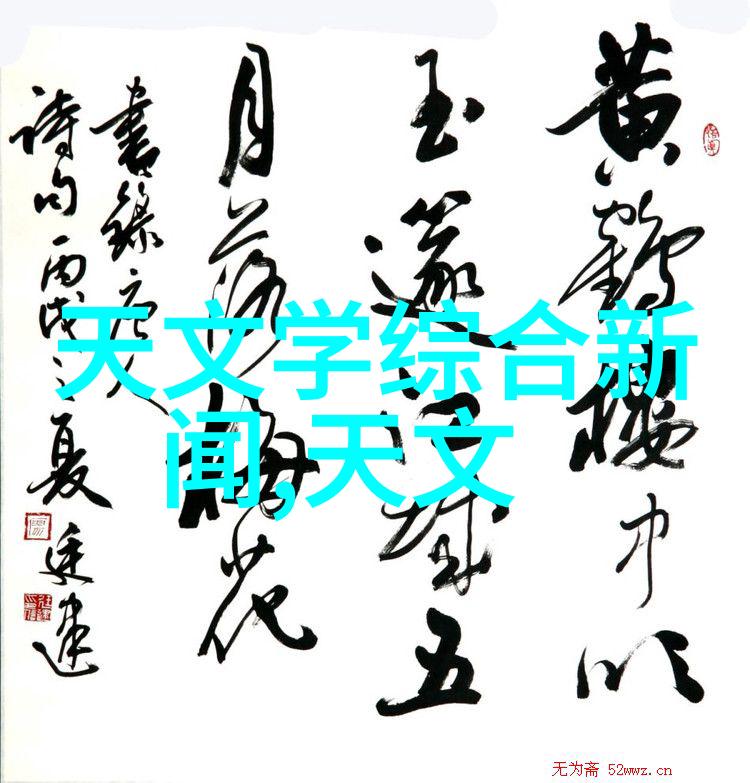 黄鶴樓中吹
玉篴江城五
月落梅花
書錄唐人
诗句丙戌之夏
天文学综合新
闻,天文
无为斋 52wwz.cn